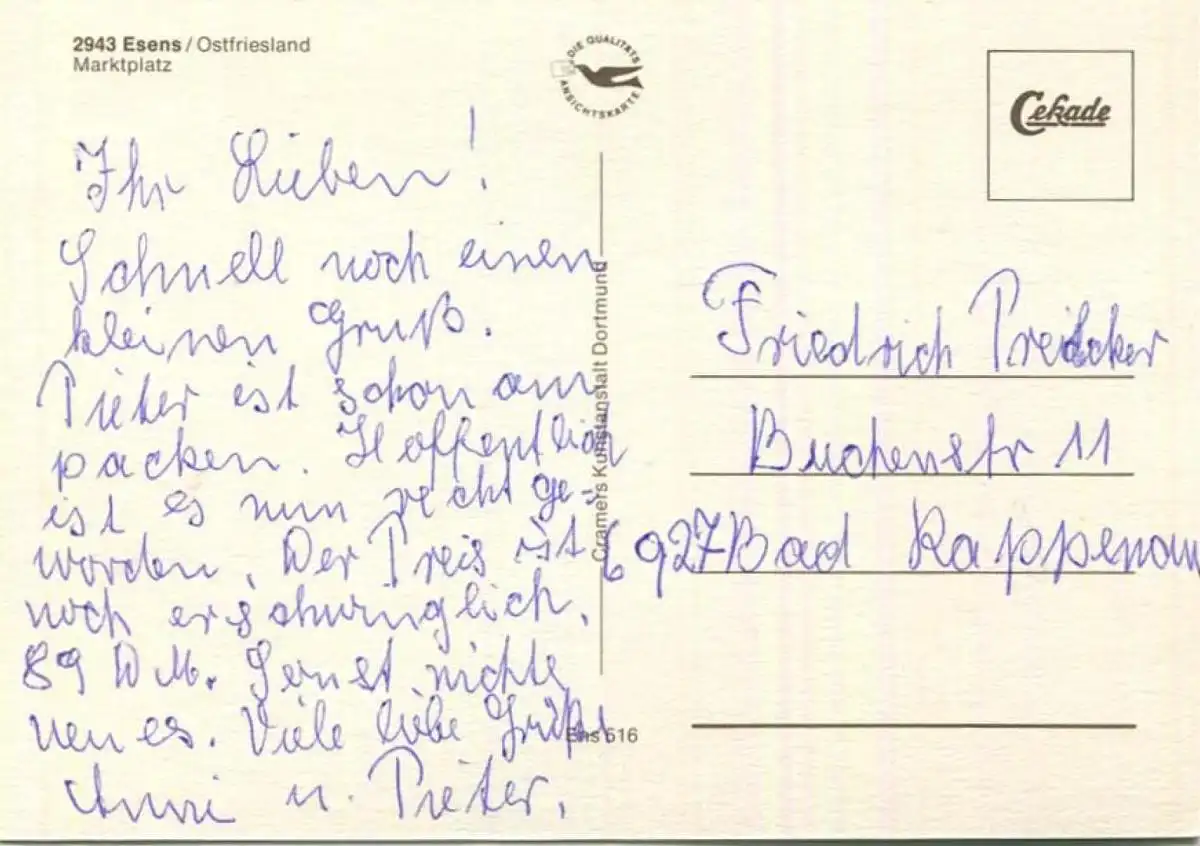 2943 Esens / Ostfriesland
Marktplatz
DIE QUALITÄTS
ANSICHTSKARTE
Cekade
Ihr Lieben!
Schnell noch einen
kleinen Gruß.
Pieter ist schon am
packen. Hoffentlich
ist es nun recht ge-
worden. Der Preis ist
noch erschwinglich.
89 DM. Sonst nichts
neues. Viele liebe Grüße
Anni u. Pieter.
Cramers Kunstanstalt Dortmund
Ens 516
Friedrich
Buchenstr 11
6927 Bad Rappenau